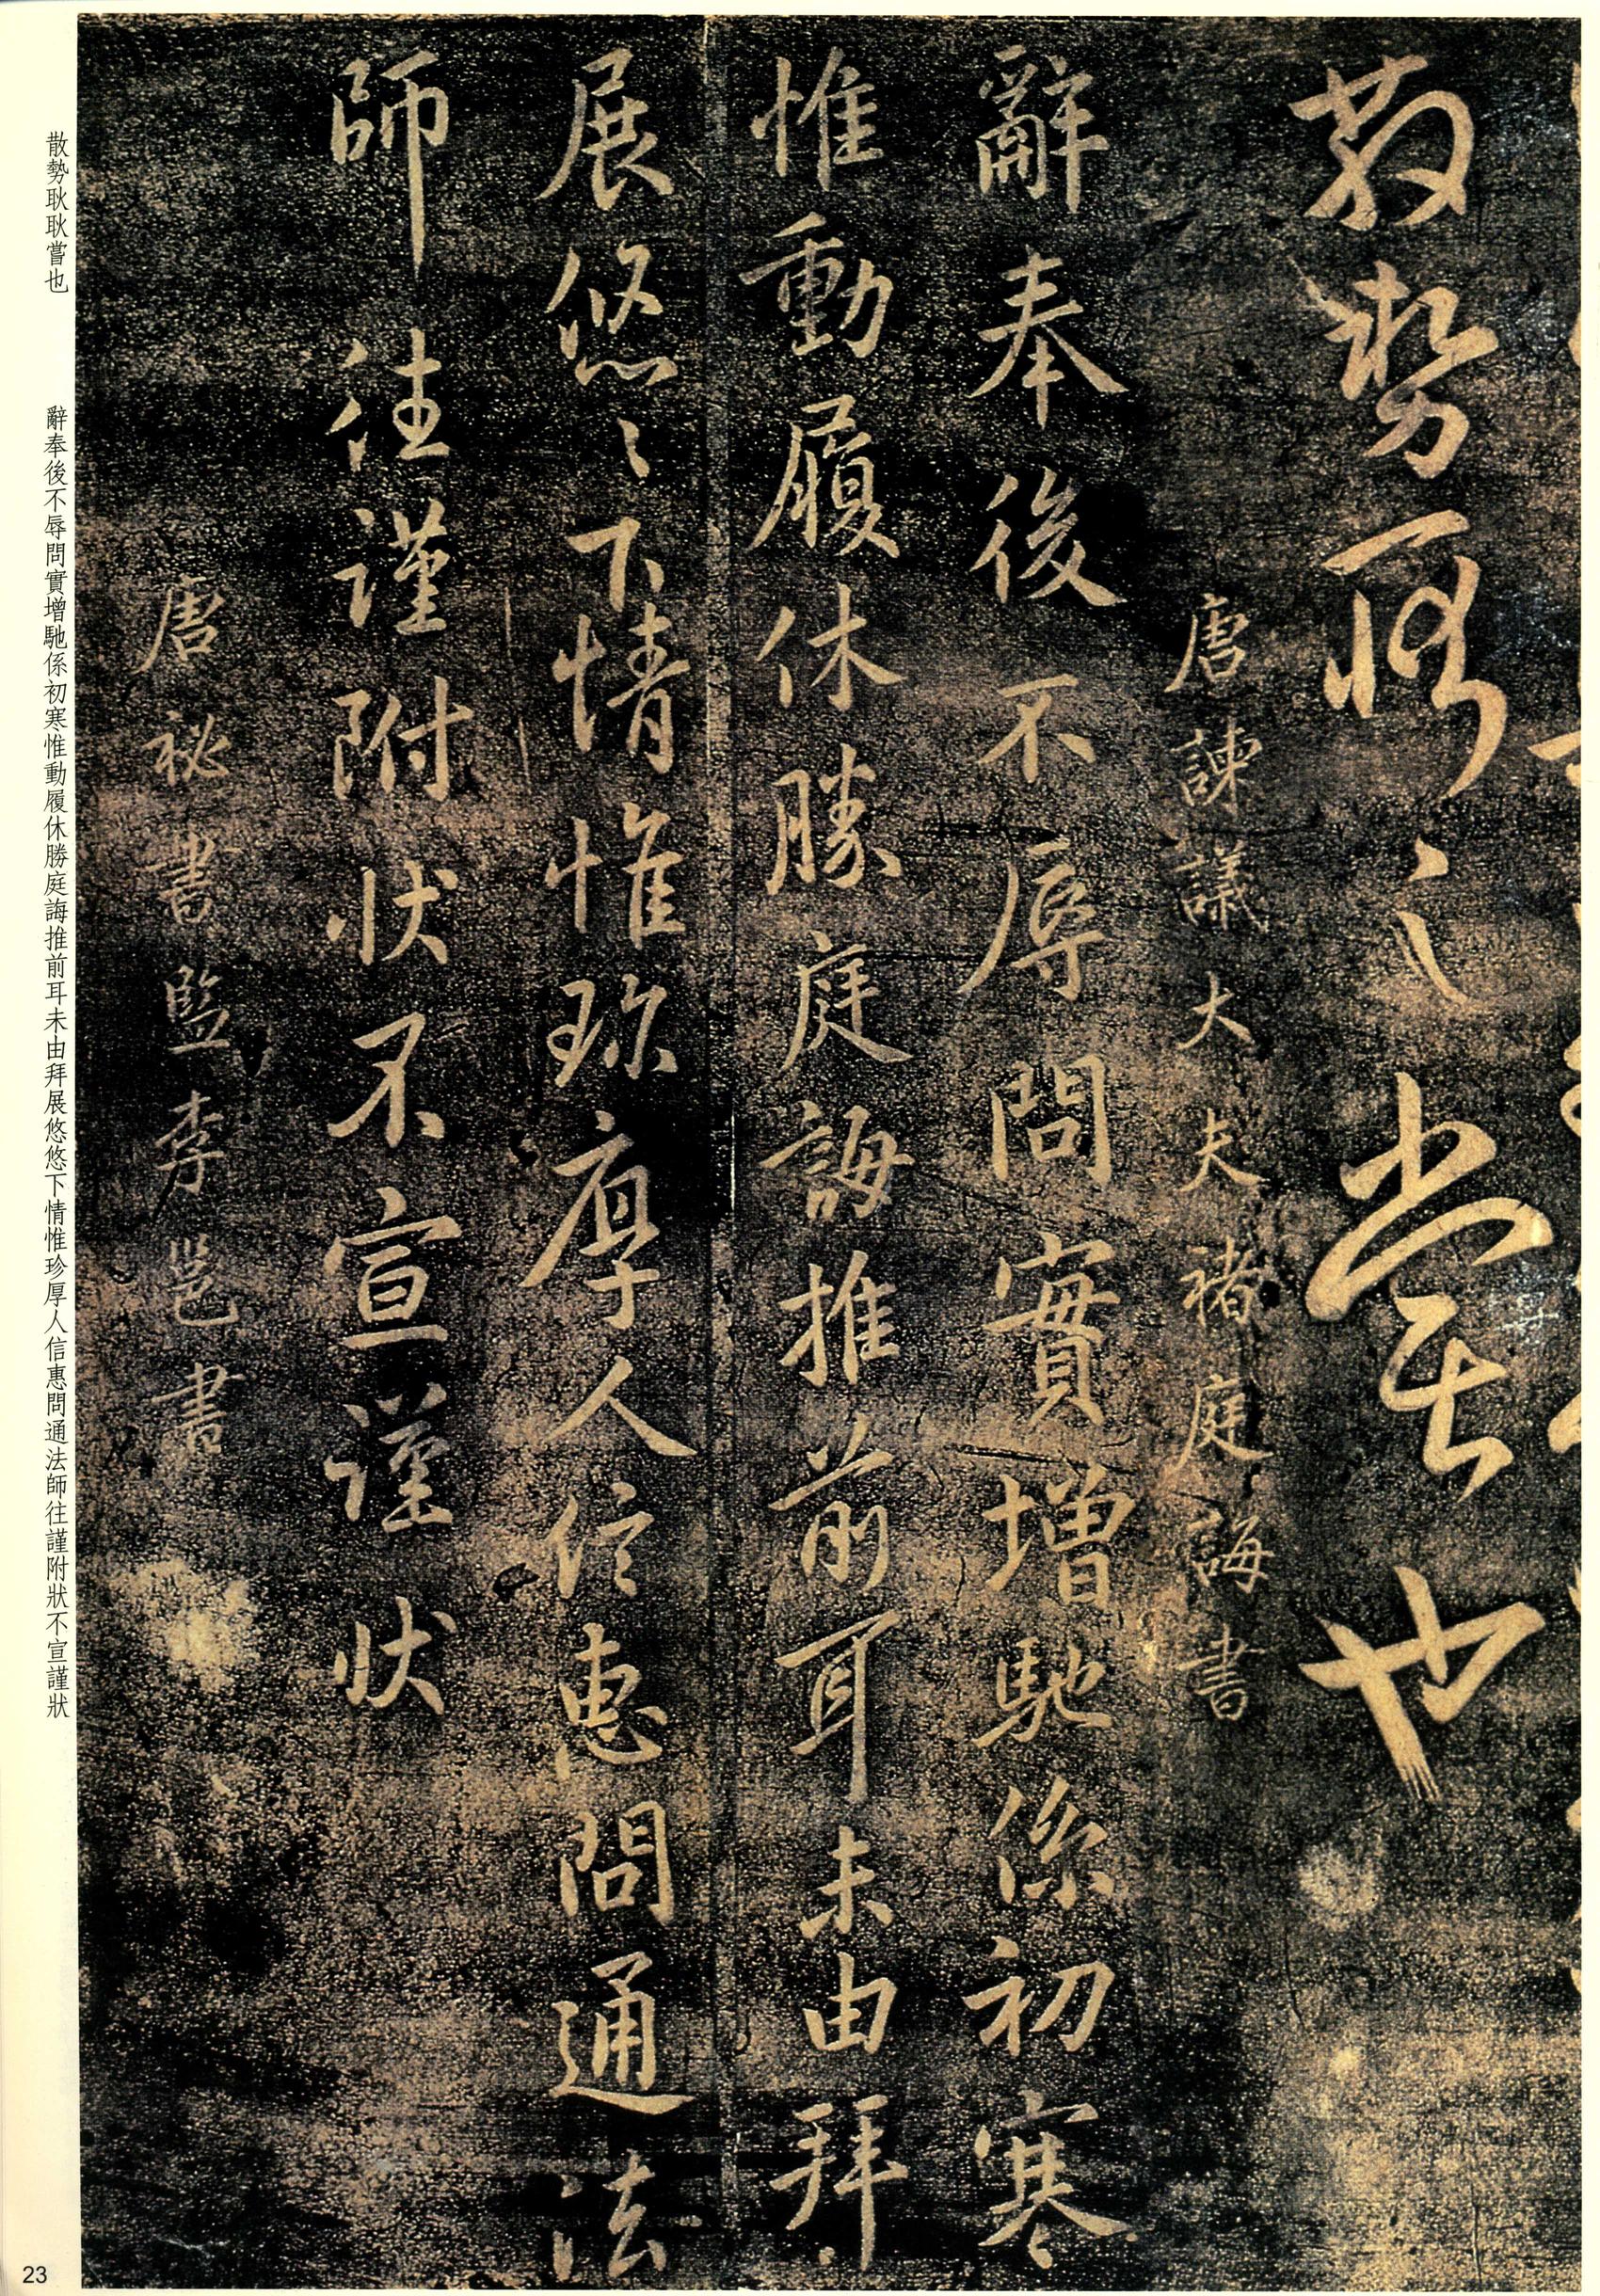 散勢耿〻嘗也
唐諫議大夫褚庭誨書
辭奉後不辱問實增馳係初寒
惟動履休勝庭誨推前耳未由拜
展悠〻下情惟珎厚人信惠問通法
師往謹附狀不宣謹狀
唐祕書監李邕書
散勢耿耿嘗也
辭奉後不辱問實增馳係初寒惟動履休勝庭誨推前耳未由拜展悠悠下情惟珍厚人信惠問通法師往謹附狀不宣謹狀
23